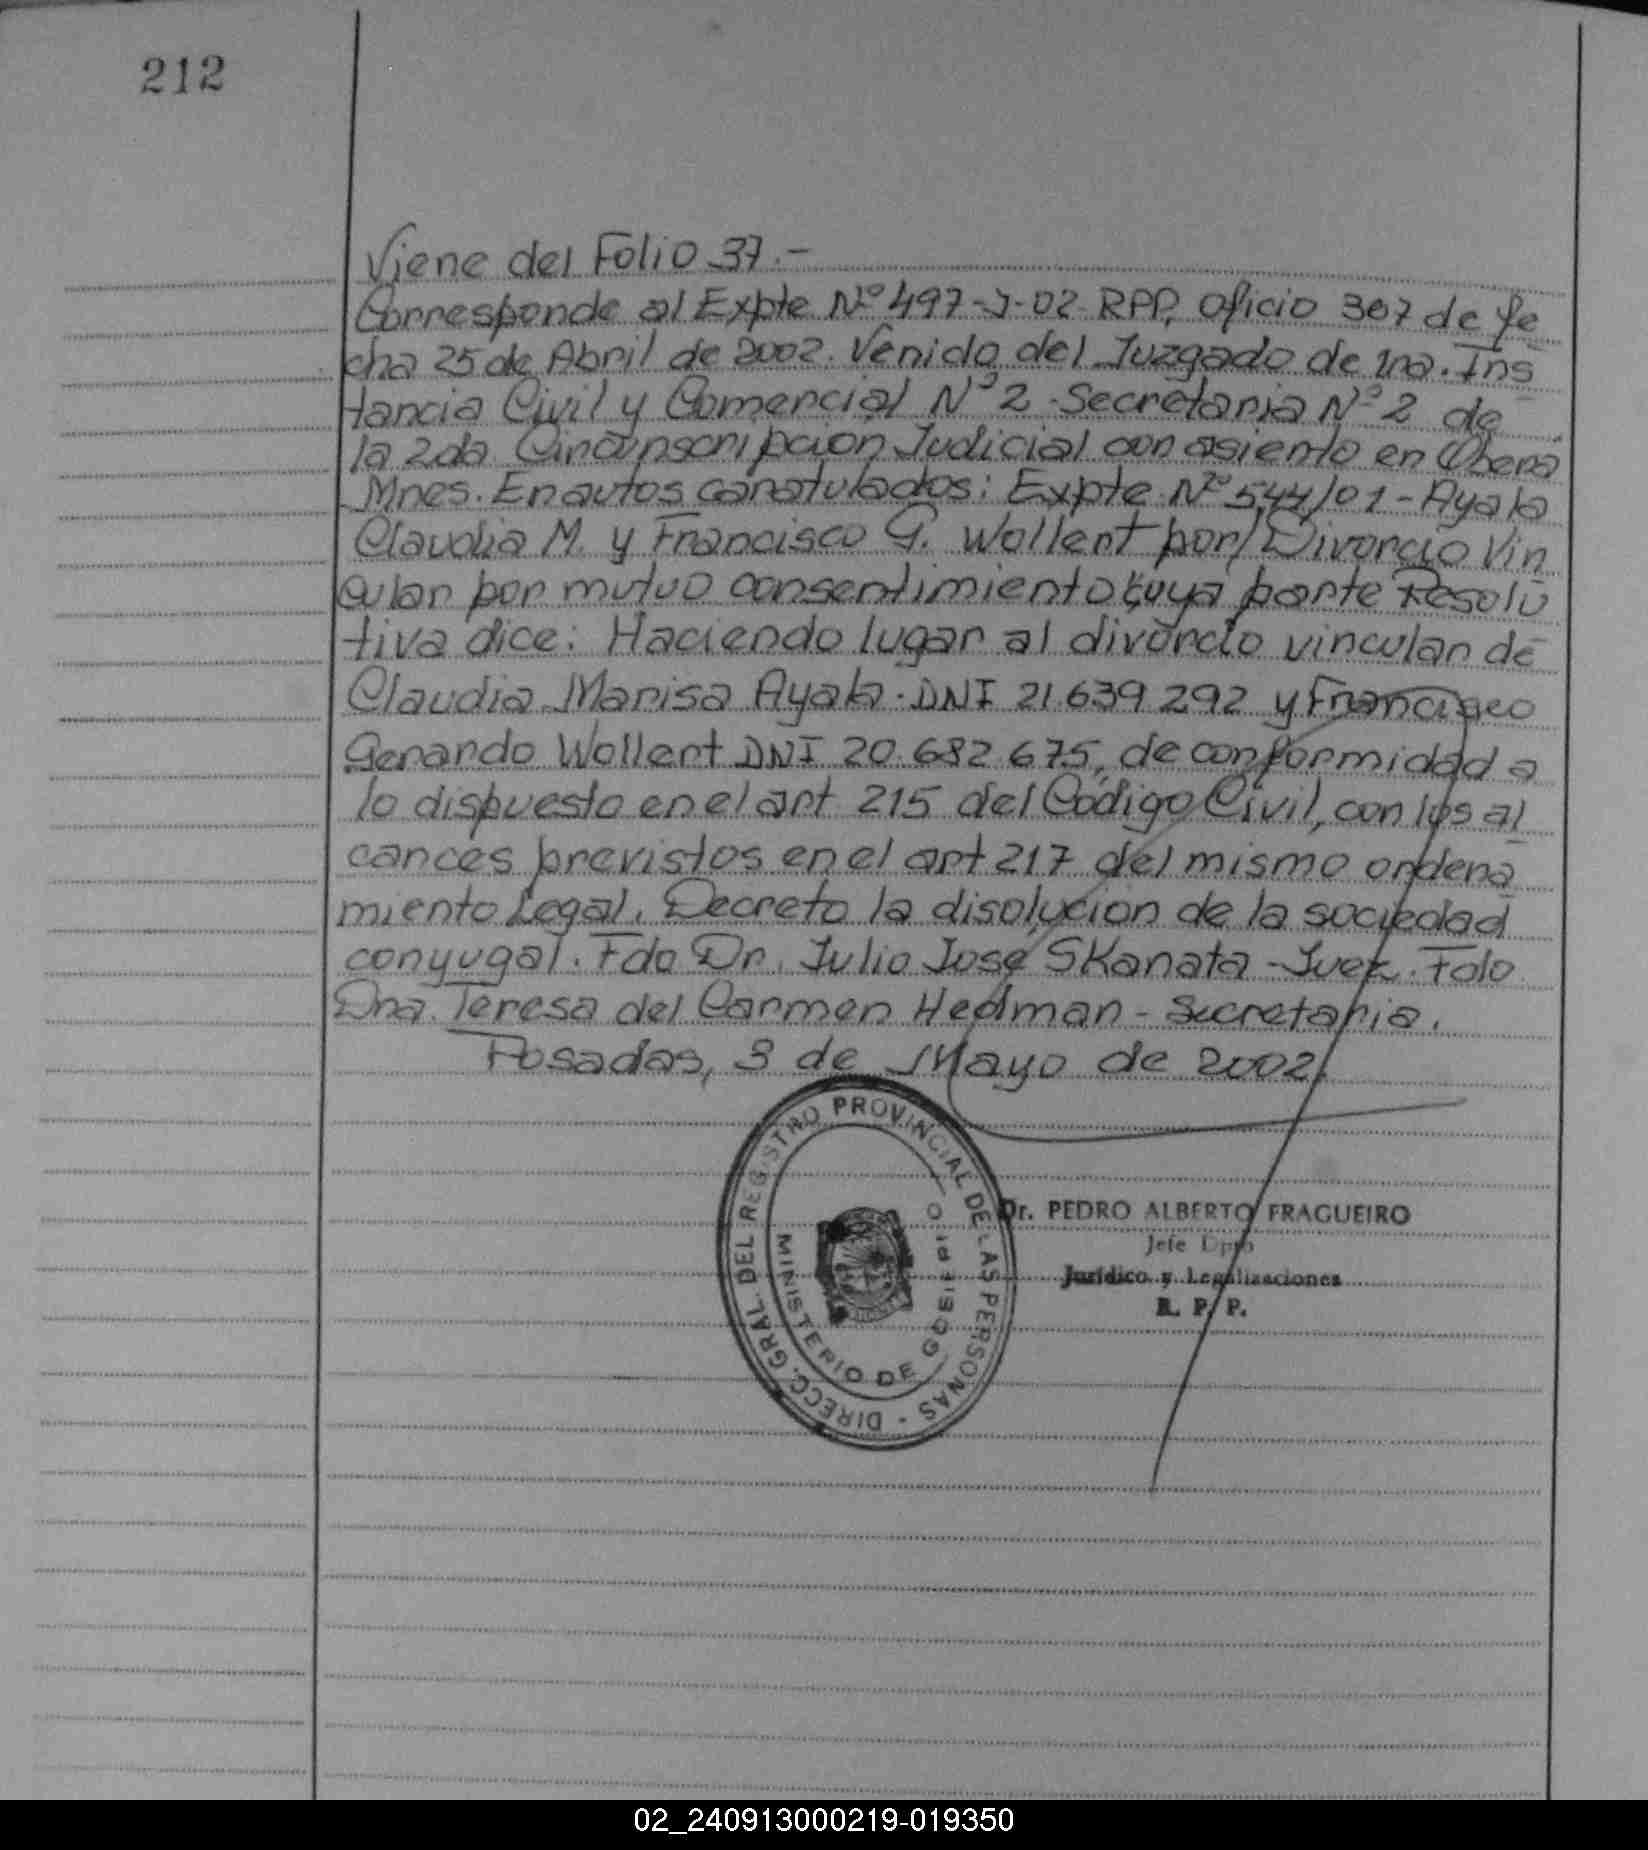 212
Viene del Folio 37.-
Corresponde al Expte Nº 497-J-02-RPP, Oficio 307 de fe
cha 25 de Abril de 2002. Venido del Juzgado de 1ra. Ins
tancia Civil y Comercial Nº 2 - Secretaria Nº 2 de
la 2da Circunscripcion Judicial con asiento en Obera
Mnes. En autos caratulados: Expte Nº 544/01 - Ayala
Claudia M. y Francisco G. Wollert por/ Divorcio Vin
cular por mutuo consentimiento cuya parte Resolu
tiva dice: Haciendo lugar al divorcio vincular de
Claudia Marisa Ayala. DNI 21.639.292 y Francisco
Gerardo Wollert DNI 20.682.675, de conformidad a
lo dispuesto en el art 215 del Código Civil, con los al
cances previstos en el art 217 del mismo ordena
miento Legal. Decreto la disolucion de la sociedad
conyugal. Fdo Dr. Julio José SKanata - Juez. Fdo.
Dra. Teresa del Carmen Hedman - Secretaria.
Posadas, 3 de Mayo de 2002.
DIRECC. GRAL. DEL REGISTRO PROVINCIAL DE LAS PERSONAS -
MINISTERIO DE GOBIERNO
Dr. PEDRO ALBERTO FRAGUEIRO
Jefe Dpto
Jurídico y Legalizaciones
R. P. P.
02_240913000219-019350